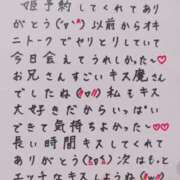 姫予約してくれてあ
りがとう(≧▽≦)以前からオキ
ニトークでやりとりしていて
今日会えてうれしかった〜♡
お兄さんすごいキス魔さん
でしたね(≧▽≦)私もキス
大好きだからいっぱい
できて気持ちよかった〜♡
長い時間キスしてくれて
ありがとう(≧▽≦)次はもっと
エッチなキスしようね(≧▽≦)♡